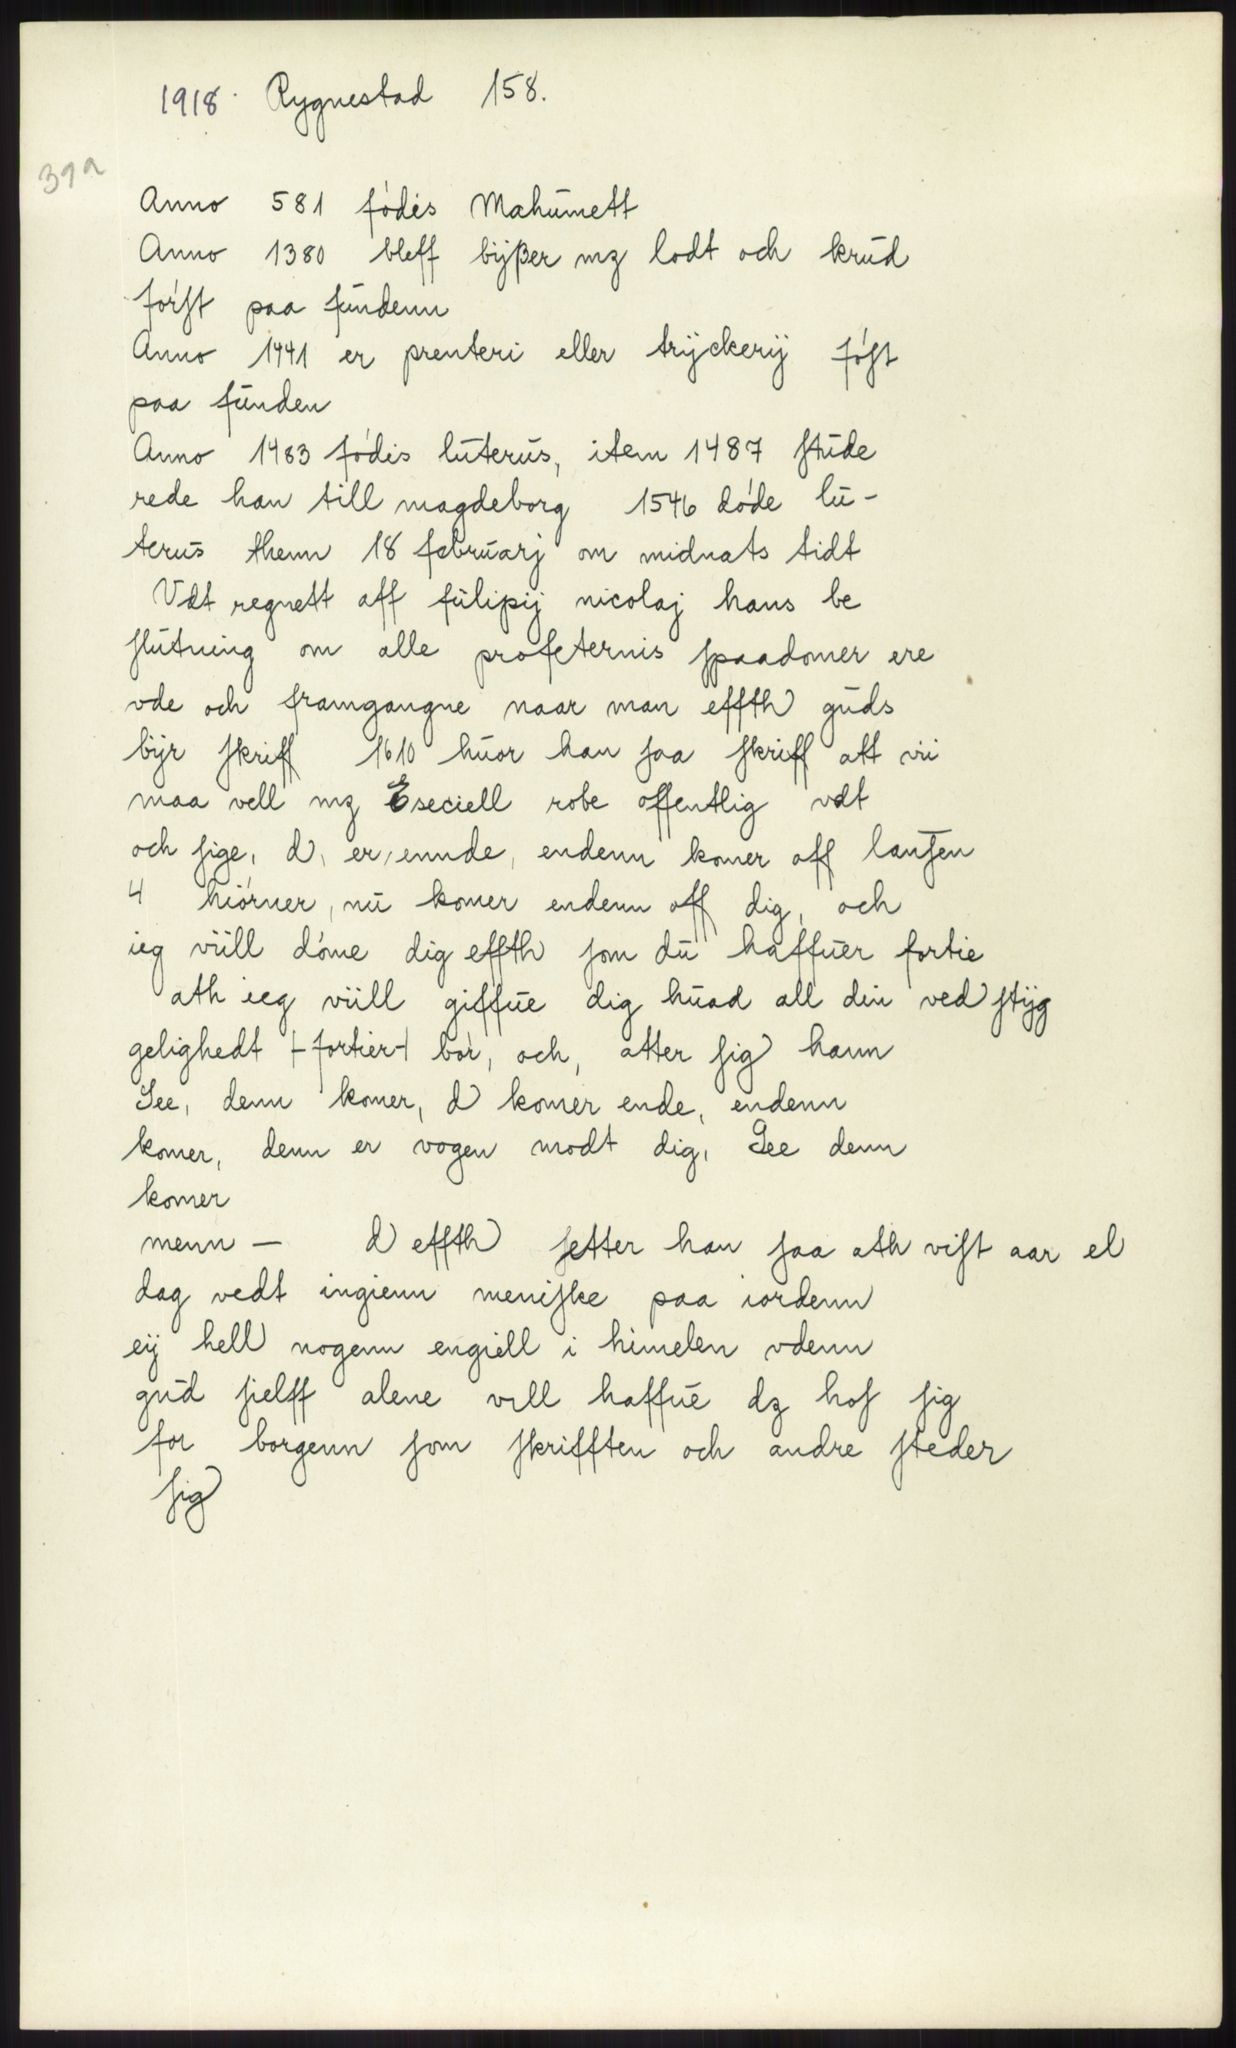 1918. Rygnestad 158.
39a
Anno 581 fódis Mahŭmett
Anno 1380 bleff bÿßer mz lodt och krŭd
fórſt paa fŭndenn
Anno 1441 er prenteri eller trÿckerÿ fóſt
paa fŭnden
Anno 1483 fódis lŭterŭs, item 1487 ſtŭde
rede han till magdeborg 1546 dóde lŭ-
terŭs thenn 18 febrŭarj om midnats tidt
Vdt regnett aff fŭlipij nicolaj hans be
ſlŭtning om alle profeternis ſpaadomer ere
vde och framgangne naar man effth gŭds
bÿr ſkriff 1610 hŭor han ſaa ſkriff att vii
maa vell mz Eseciell robe offentlig vdt
och ſige, d, er, ennde, endenn komer off lanſen
4 hiórner, nŭ komer endenn off dig, och
ieg viill dóme dig effth ſom dŭ haffŭer fortie
ath ieg viill giffŭe dig hŭad all din ved ſtÿg
gelighedt |-fortier-| bór, och, atter ſig hann
See, denn komer, d komer ende, endenn
komer, denn er vogen modt dig, See denn
komer
menn — d effth ſetter han ſaa ath viſt aar el
dag vedt ingienn meniſke paa iordenn
eÿ hell nogenn engiell i himelen vdenn
gŭd ſielff alene vill haffŭe dz hoſ ſig
for borgenn ſom ſkrifften och andre ſteder
ſig